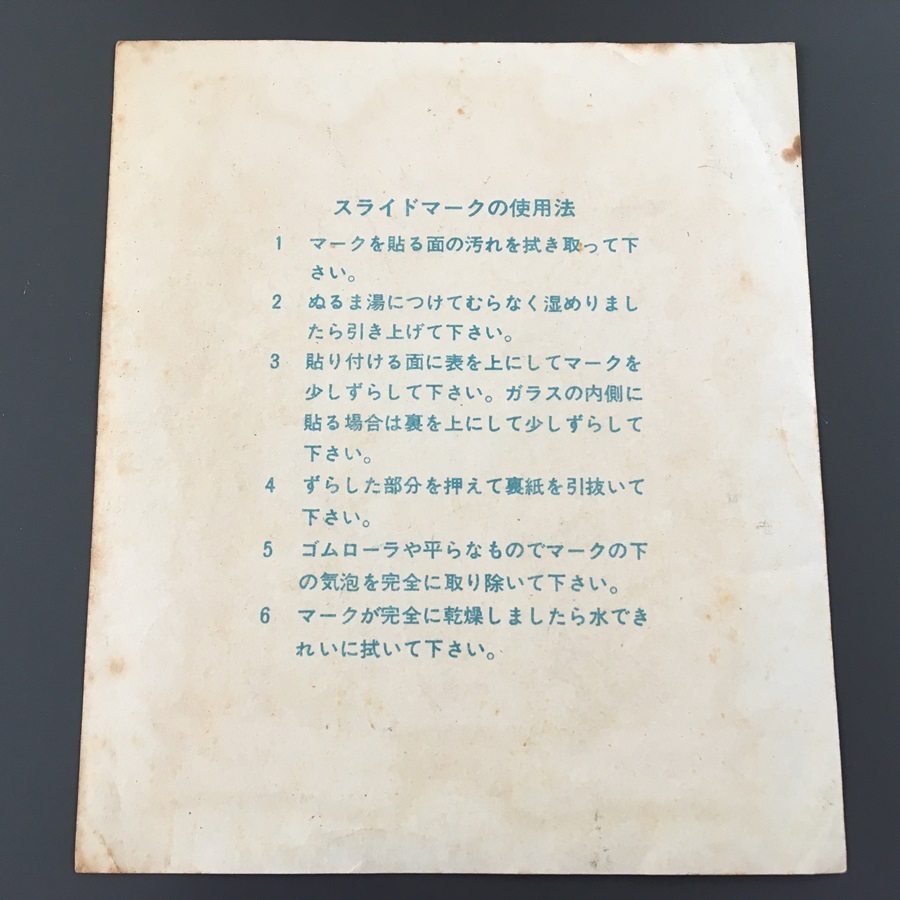 スライドマークの使用法
1 マークを貼る面の汚れを拭き取って下
さい。
2 ぬるま湯につけてむらなく湿めりまし
たら引き上げて下さい。
3 貼り付ける面に表を上にしてマークを
少しずらして下さい。ガラスの内側に
貼る場合は裏を上にして少しずらして
下さい。
4 ずらした部分を押えて裏紙を引抜いて
下さい。
5 ゴムローラや平らなものでマークの下
の気泡を完全に取り除いて下さい。
6 マークが完全に乾燥しましたら水でき
れいに拭いて下さい。